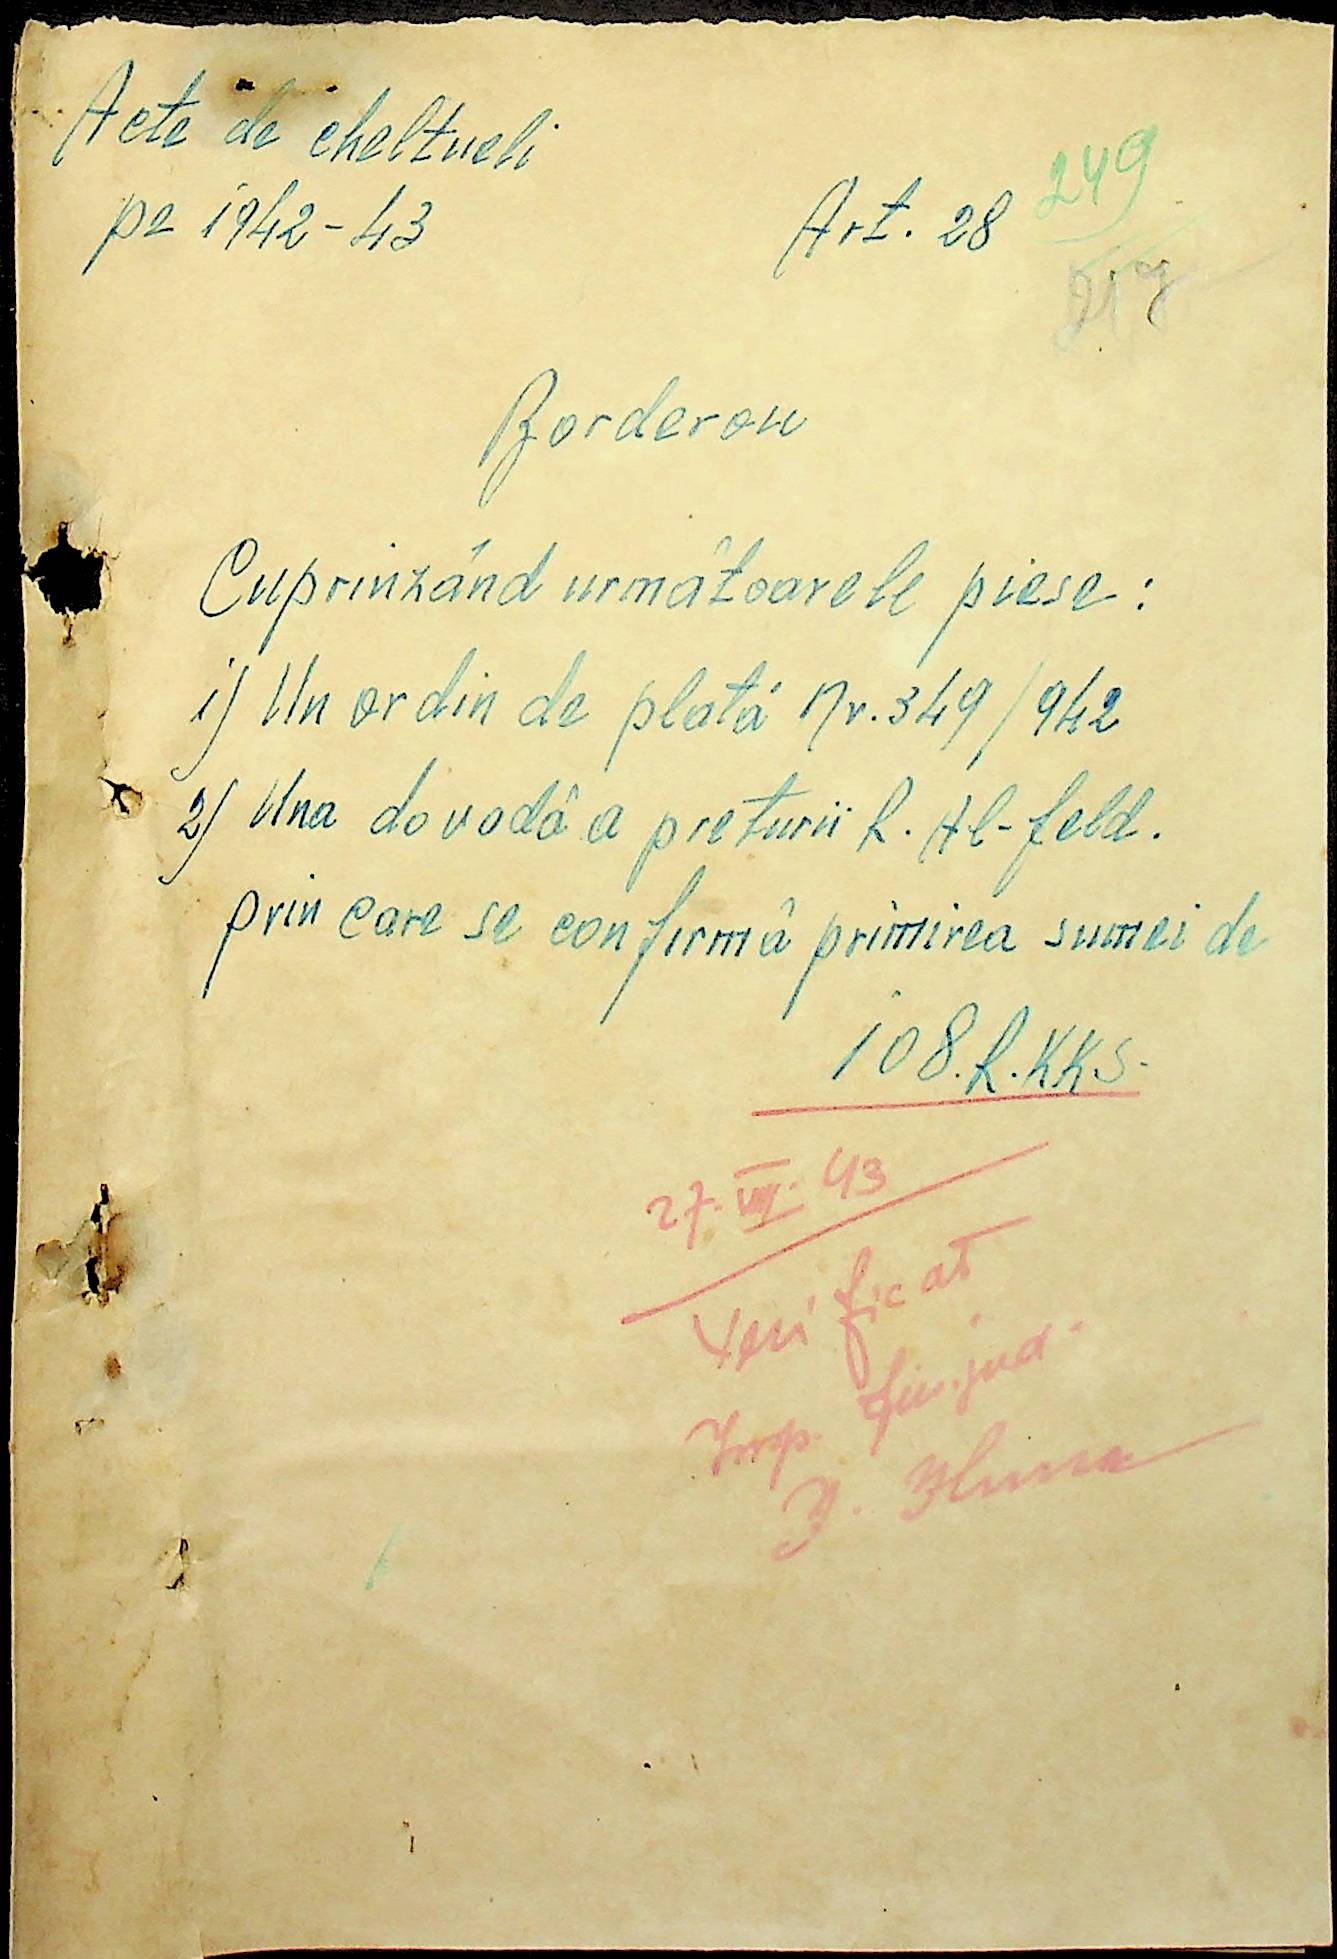 Acte de cheltueli
pe 1942-43
Art. 28
249
Borderou
Cuprinzând urmâtoarele piese:
1) Un ordin de platá Nr. 349/942
2) Una dovodâ a preturii R. Al-feld.
prin care se confirmâ primirea sumei de
108.R.KKS.
27.VIII.43
Verificat
Insp. fin. jud.